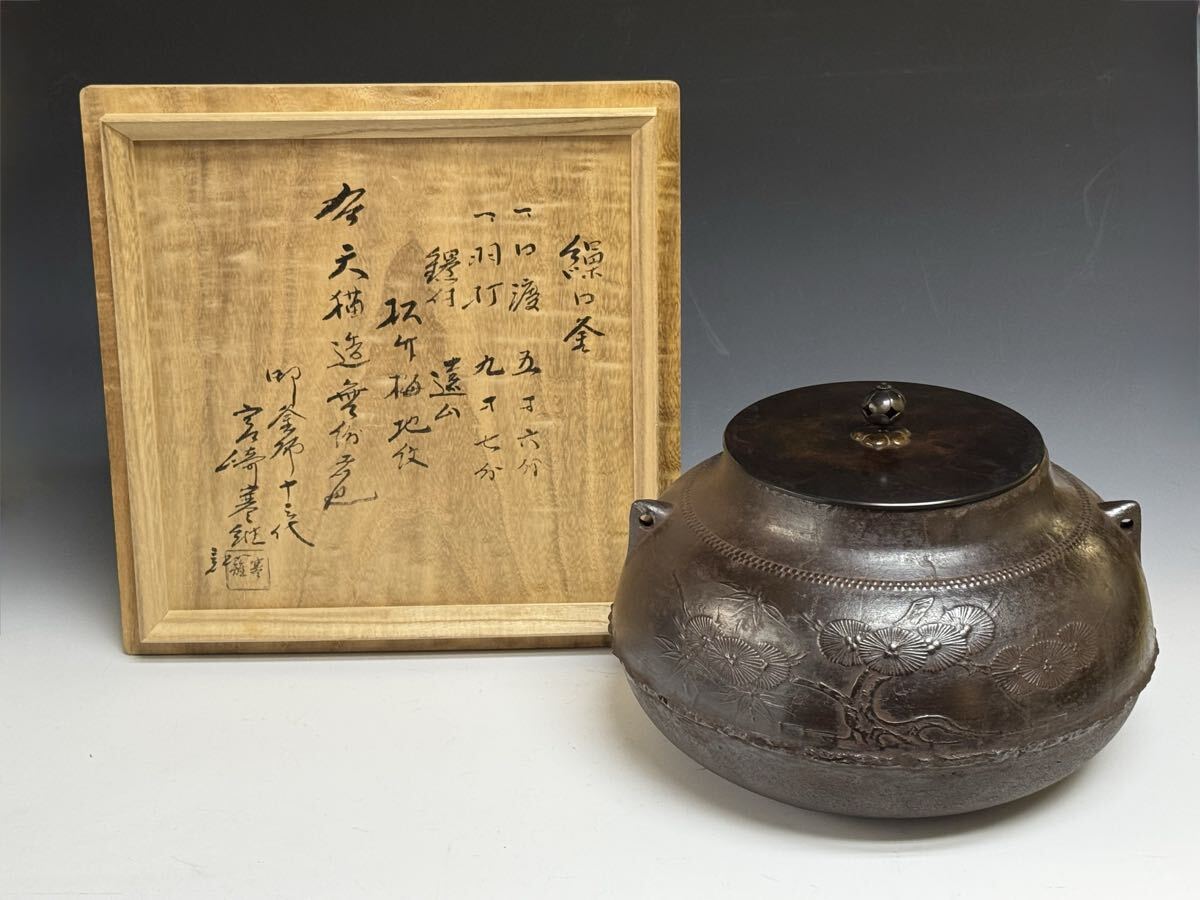 繰口釜
一口渡 五寸六分
一羽打 九寸七分
鐶付 遠山
松竹梅地紋
右天猫造無紛者也
御釜師十三代
宮﨑寒雉
記
寒雉